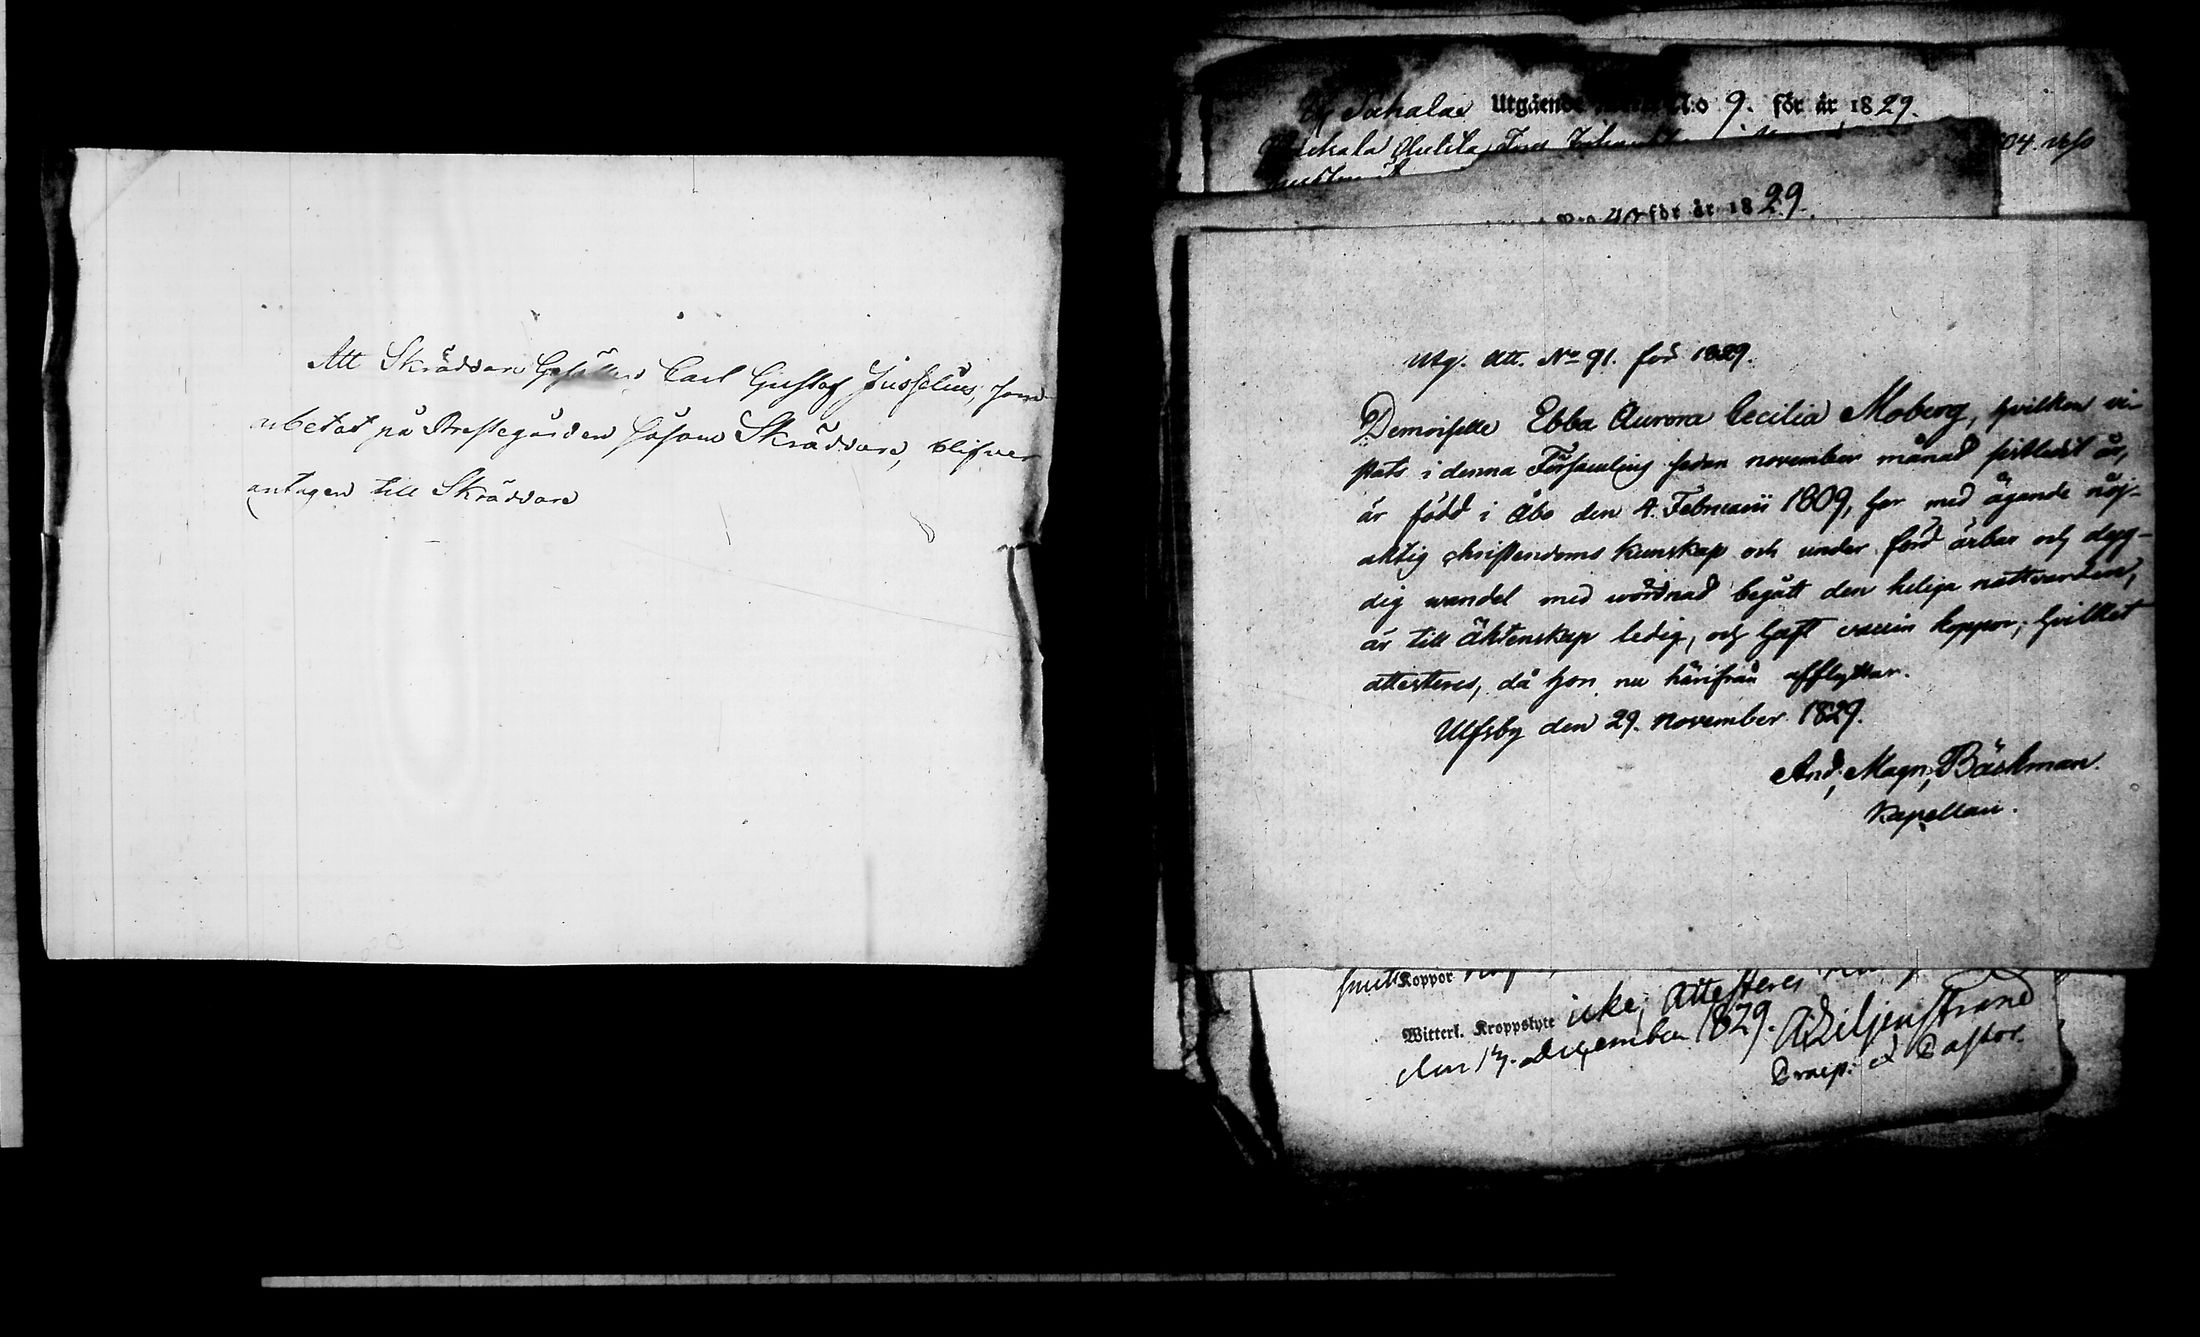 Att Skräddare Gesällen Carl Gustaf Jusselius, som
arbetat på Prestegården såsom Skräddare, blifver
antagen till Skräddare
Utgående No 9. för år 1829.
för år 1829.
Utg. Att. No 91. för 1829.
Demoiselle Ebba Aurora Cecilia Moberg, hvilken vi-
stats i denna Församling sedan november månad sistledit år,
är född i Åbo den 4. Februarii 1809, har med ägande nöj-
aktig christendoms kunskap och under förd ärbar och dyg-
dig wandel med wördnad begått den heliga nattvarden,
är till äktenskap ledig, och haft vaccin koppor; hvilket
attesteres, då hon nu härifrån afflyttar.
Ulfsby den 29. november 1829.
And. Magn. Bäckman.
Kapellan.
Koppor
Witterl. Kroppslyte icke; Attesteres
den 17. December 1829. A Liljenstrand
Praep. et Pastor.